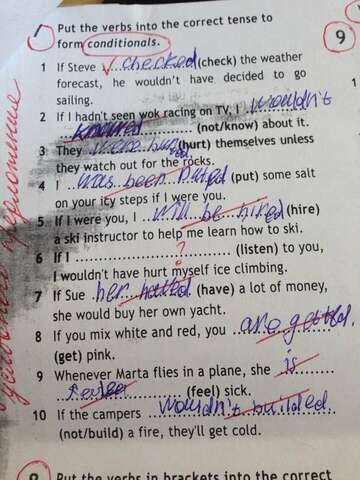 1 Put the verbs into the correct tense to
form conditionals.
9
1 If Steve checked (check) the weather
forecast, he wouldn't have decided to go
sailing.
2 If I hadn't seen wok racing on TV, I wouldn't
(not/know) about it.
3 They were (hurt) themselves unless
they watch out for the rocks.
4 I was been puted (put) some salt
on your icy steps if I were you.
5 If I were you, I will be hired (hire)
a ski instructor to help me learn how to ski.
6 If I ? (listen) to you,
I wouldn't have hurt myself ice climbing.
7 If Sue her (have) a lot of money,
she would buy her own yacht.
8 If you mix white and red, you are
(get) pink.
9 Whenever Marta flies in a plane, she is
(feel) sick.
10 If the campers wouldn't builded
(not/build) a fire, they'll get cold.
Put the verbs in brackets into the correct